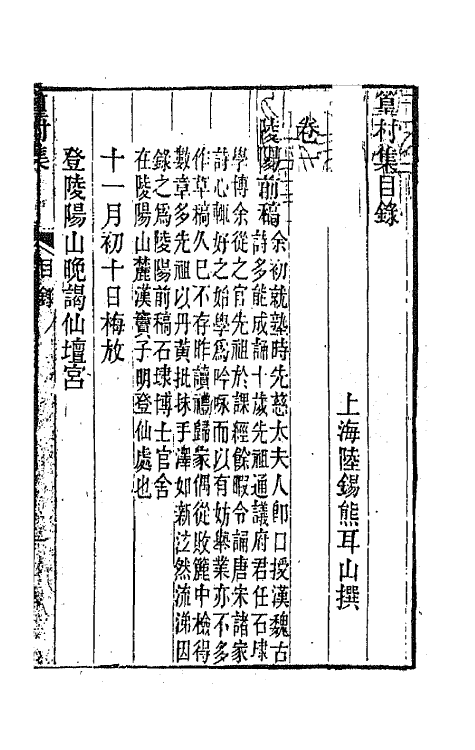 篁村集目錄
上海陸錫熊耳山撰
卷一
陵陽前稿
余初就塾時先慈太夫人卽口授漢魏古
詩多能成誦十歲先祖通議府君任石埭
學博余從之官先祖於課經餘暇令誦唐宋諸家
詩心輒好之始學爲吟咏而以有妨舉業亦不多
作草稿久已不存昨讀禮歸家偶從敗簏中檢得
數章多先祖以丹黄批抹手澤如新泫然流涕因
錄之爲陵陽前稿石埭博士官舍
在陵陽山麓漢竇子明登仙處也
十一月初十日梅放
登陵陽山晚謁仙壇宮
篁村集
目錄